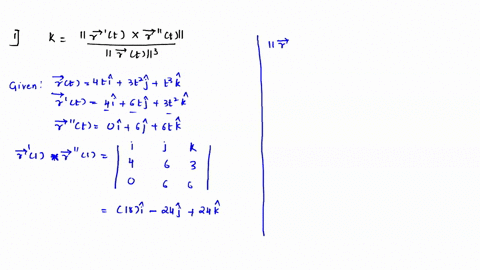 1] K = || r⃗'(t) × r⃗''(t) || / || r⃗(t) ||³
Given: r⃗(t) = 4t î + 3t² ĵ + t³ k̂
r⃗'(t) = 4 î + 6t ĵ + 3t² k̂
r⃗''(t) = 0 î + 6 ĵ + 6t k̂
r⃗'(1) × r⃗''(1) = | i j k |
| 4 6 3 |
| 0 6 6 |
= (18) î − 24 ĵ + 24 k̂
|| r⃗